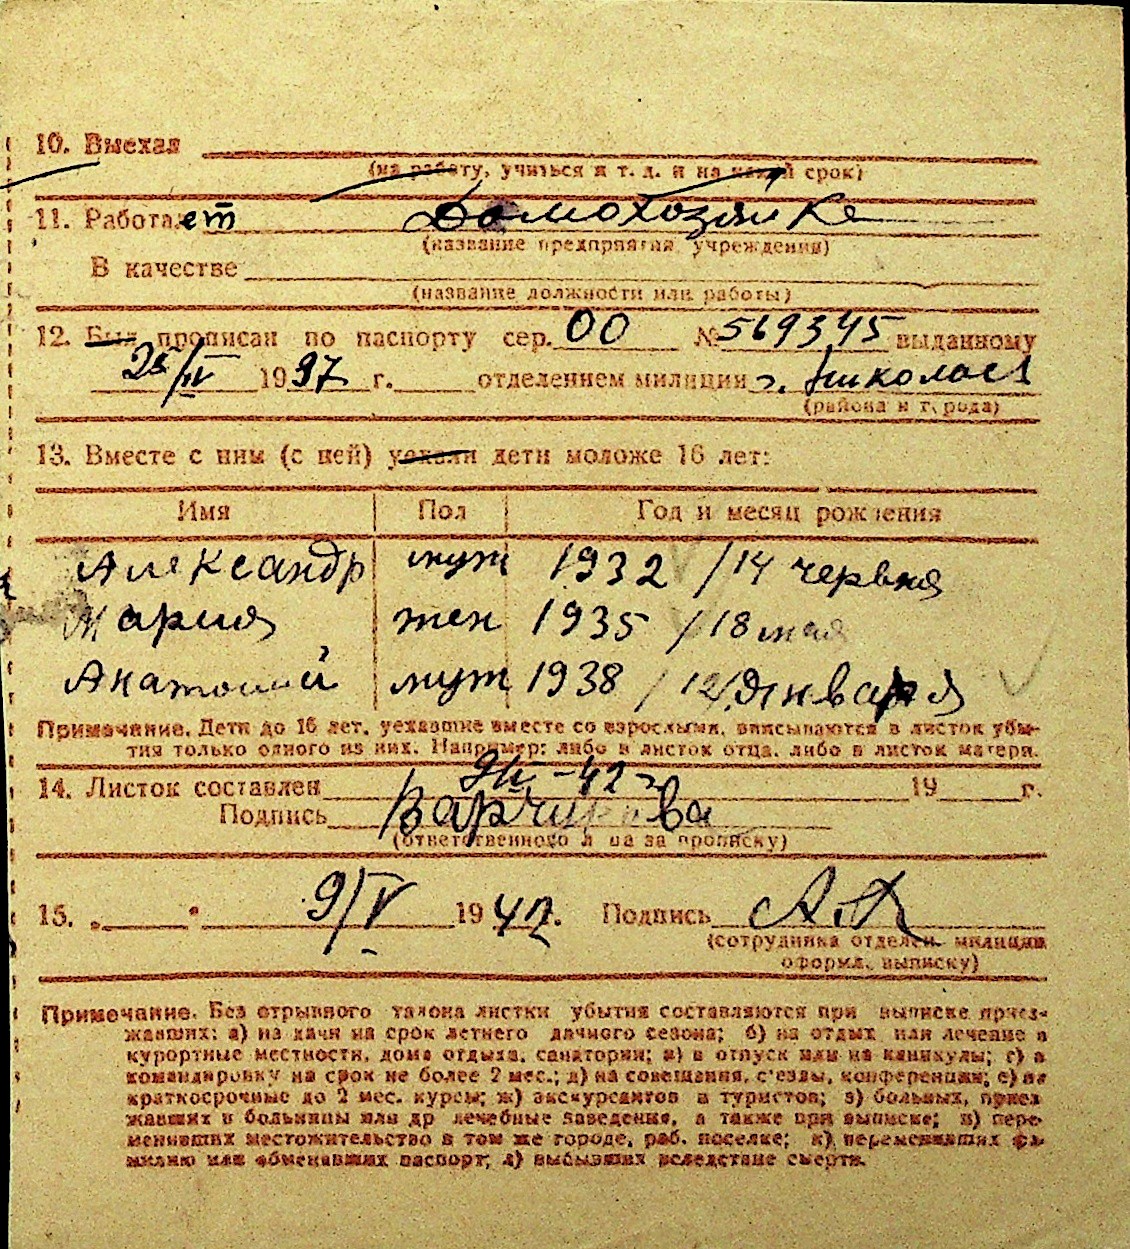 10. Выехал
(на работу, учиться и т. д. и на какой срок)
11. Работает Домохозяйка
(название предприятия учреждения)
В качестве
(название должности или работы)
12. Был прописан по паспорту сер. 00 № 569345 выданному
25/IV 1937 г. отделением милиции г. Николаев
(района и города)
13. Вместе с ним (с ней) уехали дети моложе 16 лет:
Имя Пол Год и месяц рождения
Александр муж 1932 / 14 червня
Мария жен 1935 / 18 мая
Анатолий муж 1938 / 12 января
Примечание. Дети до 16 лет, уехавшие вместе со взрослыми, вписываются в листок убы-
тия только одного из них. Например: либо в листок отца, либо в листок матери.
14. Листок составлен 42 19 г.
Подпись
(ответственного лица за прописку)
15. „ " 9/V 1942. Подпись
(сотрудника отделен. милиции
оформл. выписку)
Примечание. Без отрывного талона листки убытия составляются при выписке приез-
жавших: а) на дачи на срок летнего дачного сезона; б) на отдых или лечение в
курортные местности, дома отдыха, санатории; в) в отпуск или на каникулы; г) в
командировку на срок не более 2 мес.; д) на совещания, с'езды, конференции; е) на
краткосрочные до 2 мес. курсы; ж) экскурсантов и туристов; з) больных, приез
жавших в больницы или др лечебные заведения, а также при выписке; и) пере-
менивших местожительство в том же городе, раб. поселке; к) переменивших фа-
милию или обменявших паспорт; л) выбывших вследствие смерти.